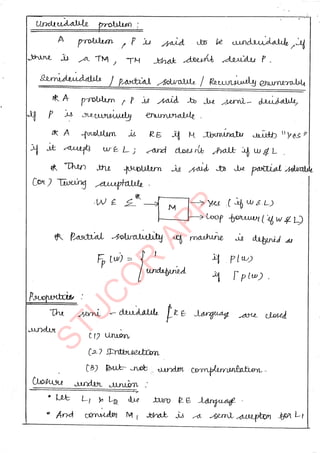 Undecidable problem :
A problem, P is said to be undecidable, if
there is a TM, TM that doesn't decides P.
Semidecidable / Partial solvable / Recursively enumerable
* A problem, P is said to be semi-decidable,
if P is recursively enumerable.
* A problem is RE if M terminates with "Yes"
if it accepts w ∈ L; and doesn't halt if w ∉ L.
* Then the problem is said to be partial solvable
(or) Turing acceptable.
w ∈ Σ* → M → yes (if w ∈ L)
→ loop forever (if w ∉ L)
* Partial solvability of machine is defined as
Fp (w) = { 1 if P(w)
undefined if ⌈p(w).
Properties :
The semi-decidable / RE language are closed
under
(1) union
(2) Intersection
(3) But not under complementation.
Closure under union :
* Let L1 & L2 be two RE language
* And consider M1 that is a semi acceptor for L1
STUCOR APP